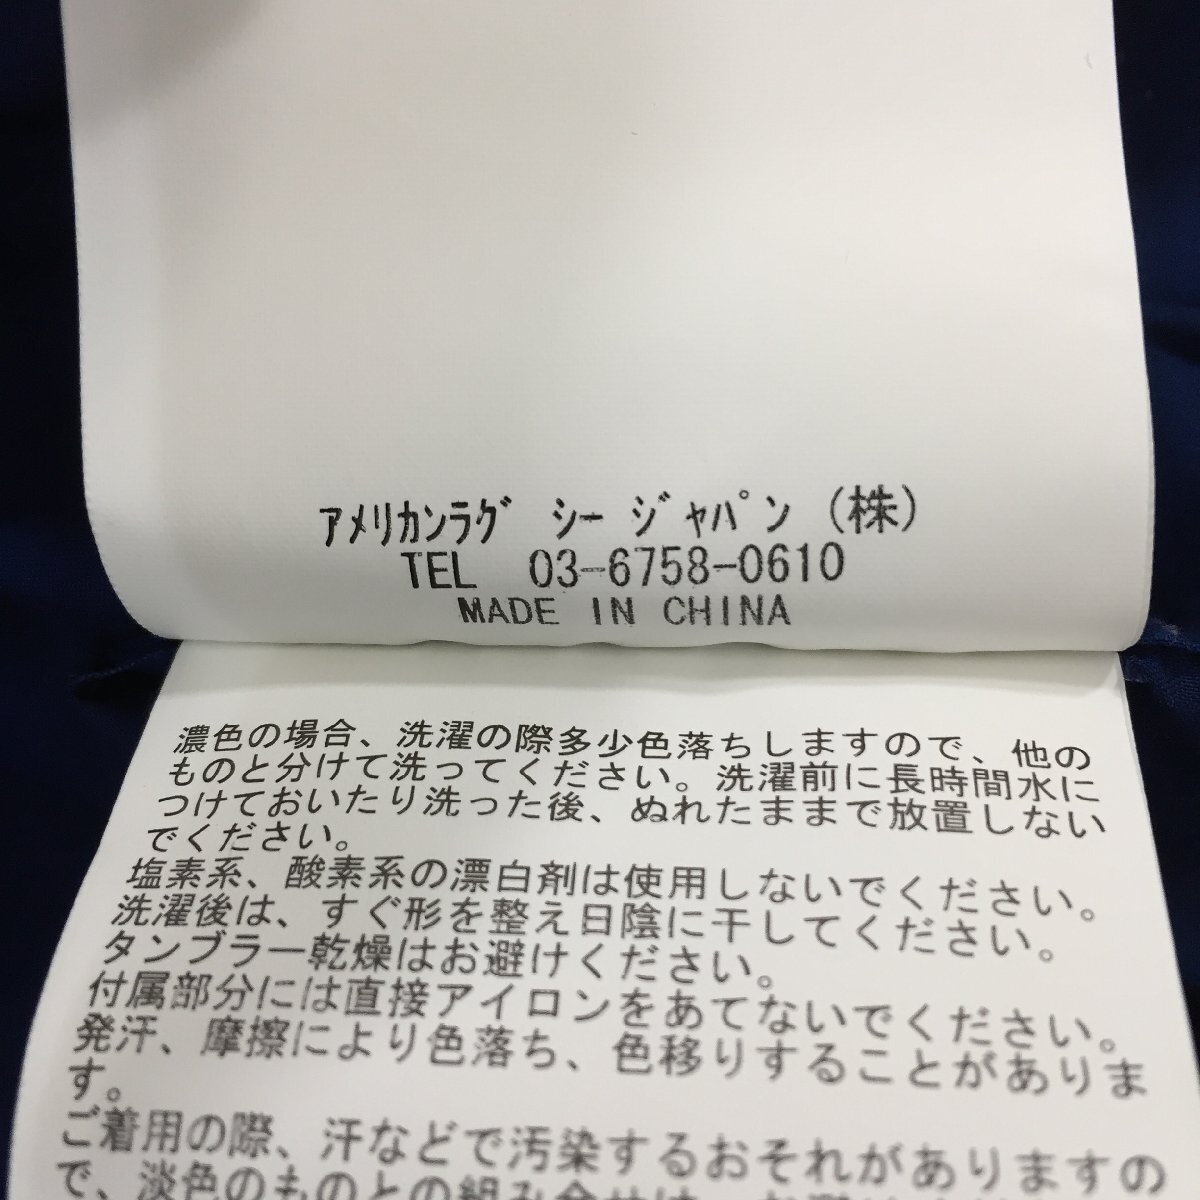 ｱﾒﾘｶﾝﾗｸﾞ ｼｰ ｼﾞｬﾊﾟﾝ（株）
TEL 03-6758-0610
MADE IN CHINA
濃色の場合、洗濯の際多少色落ちしますので、他の
ものと分けて洗ってください。洗濯前に長時間水に
つけておいたり洗った後、ぬれたままで放置しない
でください。
塩素系、酸素系の漂白剤は使用しないでください。
洗濯後は、すぐ形を整え日陰に干してください。
タンブラー乾燥はお避けください。
付属部分には直接アイロンをあてないでください。
発汗、摩擦により色落ち、色移りすることがありま
す。
ご着用の際、汗などで汚染するおそれがありますの
で、淡色のものとの組み合せは、